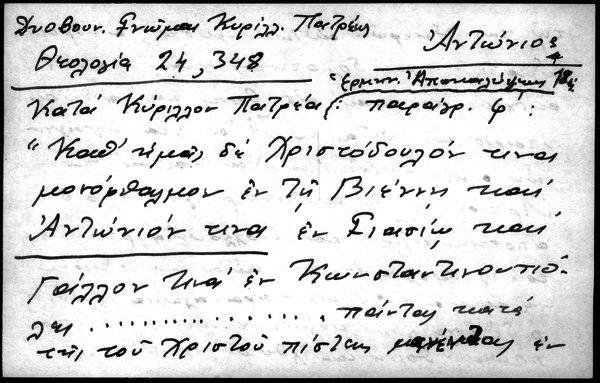 Δυοβουν. Γνῶμαι Κυρίλλ. Πατρέως
Θεολογία 24, 348
Ἀντώνιος
Ἑρμην. Ἀποκαλύψεως
Κατά Κύριλλον Πατρέα: παράγρ. φ´:
"Καθ' ἡμᾶς δέ Χριστόδουλόν τινα
μονόφθαλμον ἐν τῇ Βιέννῃ καί
Ἀντώνιόν τινα ἐν Γιασίῳ καί
Γάλλον τινά ἐν Κωνσταντινουπό-
λει .................. πάντας κατά
τῆς τοῦ Χριστοῦ πίστεως μανέντας ἐν